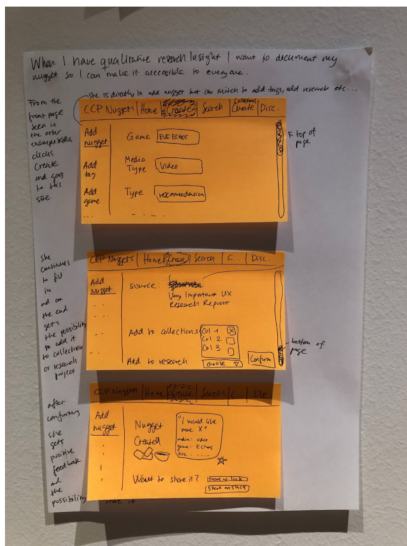 When I have qualitative research insight I want to document my
nugget so I can make it accessible to everyone...
She is directly to add nugget but can switch to add tags, add research etc...
From the
front page
seen in
the other
clicks
Create
and goes
to this
site
CCP Nuggets | Home | Create | Search | Create | Disc.
Add
nugget
Add
tag
Add
game
Game
EVE Echoes
Media
Type
Video
Type
recommendation
top of
page
She
continues
to fill
in
and on
the end
gets
the possibility
to add it
to collection
or research
project
CCP Nuggets | Home | Create | Search | C. | Disc.
Add
Nugget
Source:
Very Important UX
Research Report
Add to collections
Col 1
Col 2
Col 3
Add to research
choose
Confirm
bottom of
page
After
confirming
she
gets
positive
feedback
and
the
possibility
CCP Nuggets | Home | Create | Search | C | Disc.
Add
nugget
Nugget
Created
"I would like
more X."
media: video
game: Echoes
Want to share it?
Share on Slack